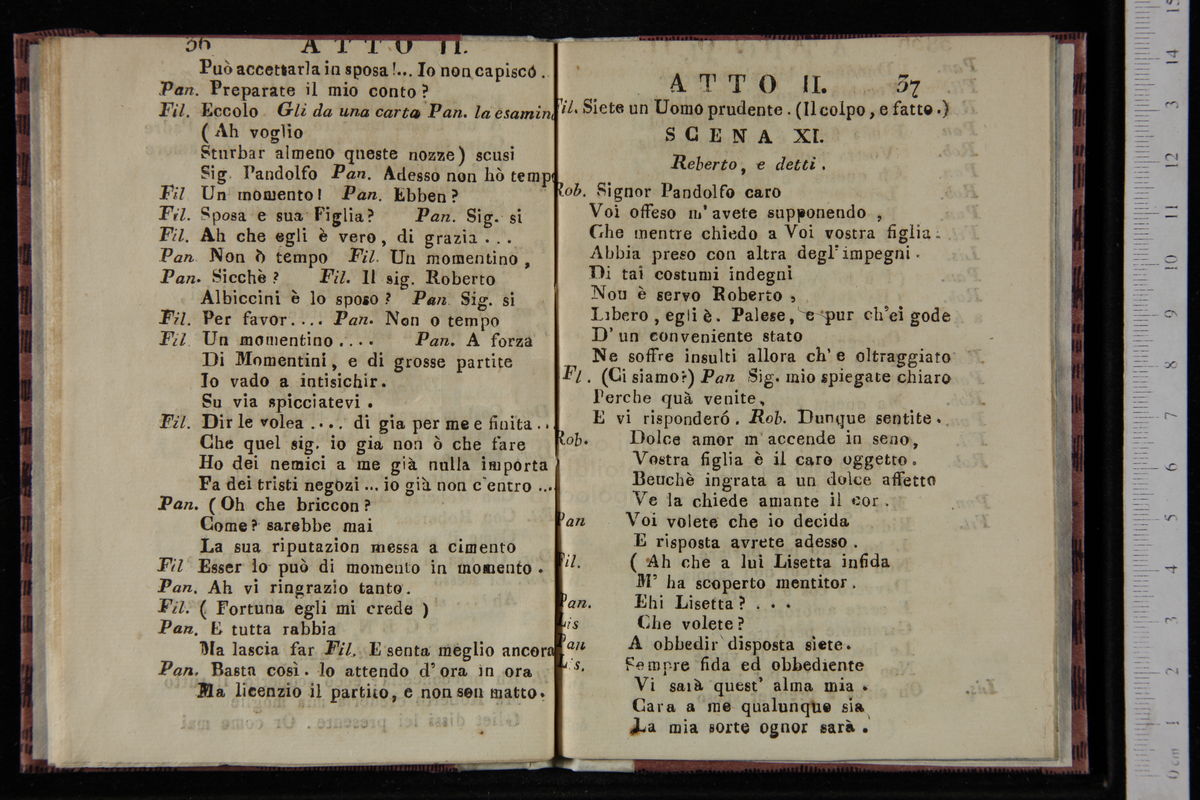 36 ATTO II.
Può accettarla in sposa!... Io non capiscó.
Pan. Preparate il mio conto?
Fil. Eccolo Gli da una carta Pan. la esamin
(Ah voglio
Sturbar almeno queste nozze) scusi
Sig. Pandolfo Pan. Adesso non hò temp
Fil Un momento! Pan. Ebben?
Fil. Sposa e sua Figlia? Pan. Sig. si
Fil. Ah che egli è vero, di grazia...
Pan Non ò tempo Fil. Un momentino,
Pan. Sicchè? Fil. Il sig. Roberto
Albiccini è lo sposo? Pan Sig. si
Fil. Per favor.... Pan. Non o tempo
Fil Un momentino.... Pan. A forza
Di Momentini, e di grosse partite
Io vado a intisichir.
Su via spicciatevi.
Fil. Dir le volea.... di gia per me e finita..
Che quel sig. io gia non ò che fare
Ho dei nemici a me già nulla importa
Fa dei tristi negozi... io già non c'entro...
Pan. (Oh che briccon?
Come? sarebbe mai
La sua riputazion messa a cimento
Fil Esser lo può di momento in momento.
Pan. Ah vi ringrazio tanto.
Fil. (Fortuna egli mi crede)
Pan. E tutta rabbia
Ma lascia far Fil. E senta meglio ancora
Pan. Basta così. Io attendo d'ora in ora
Ma licenzio il partito, e non son matto.
ATTO II. 37
Fil. Siete un Uomo prudente. (Il colpo, e fatto.)
SCENA XI.
Reberto, e detti.
Rob. Signor Pandolfo caro
Voi offeso m'avete supponendo,
Che mentre chiedo a Voi vostra figlia.
Abbia preso con altra degl'impegni.
Di tai costumi indegni
Non è servo Roberto,
Libero, egli è. Palese, e pur ch'ei gode
D'un conveniente stato
Ne soffre insulti allora ch'e oltraggiato
Fl. (Ci siamo?) Pan Sig. mio spiegate chiaro
Perche quà venite,
E vi risponderó. Rob. Dunque sentite.
Rob. Dolce amor m'accende in seno,
Vostra figlia è il caro oggetto.
Benchè ingrata a un dolce affetto
Ve la chiede amante il cor.
Pan Voi volete che io decida
E risposta avrete adesso.
Fil. (Ah che a lui Lisetta infida
M'ha scoperto mentitor.
Pan. Ehi Lisetta?...
Lis Che volete?
Pan A obbedir disposta siete.
Lis. Sempre fida ed obbediente
Vi sarà quest'alma mia.
Cara a me qualunque sia
La mia sorte ognor sarà.